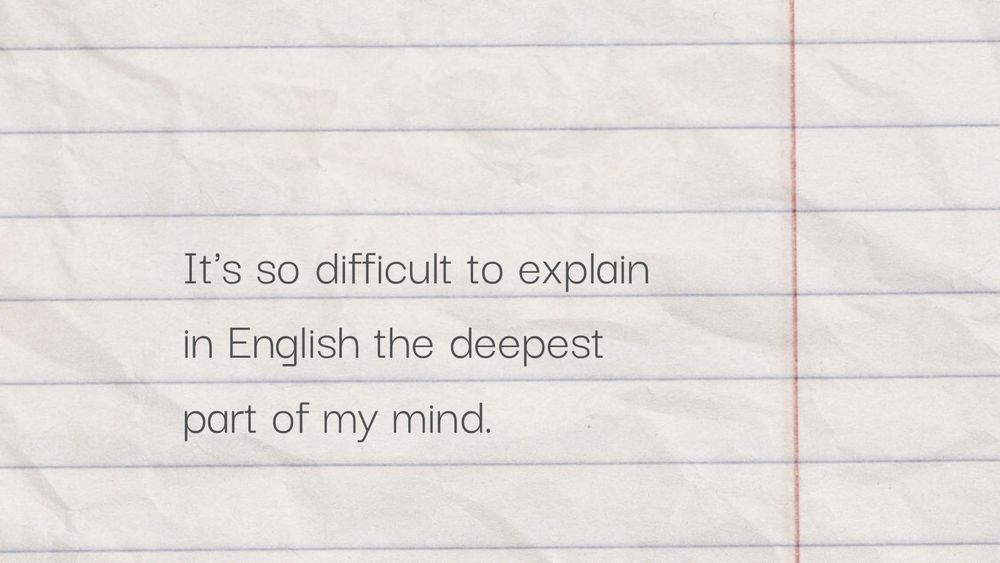 It’s so difficult to explain
in English the deepest
part of my mind.